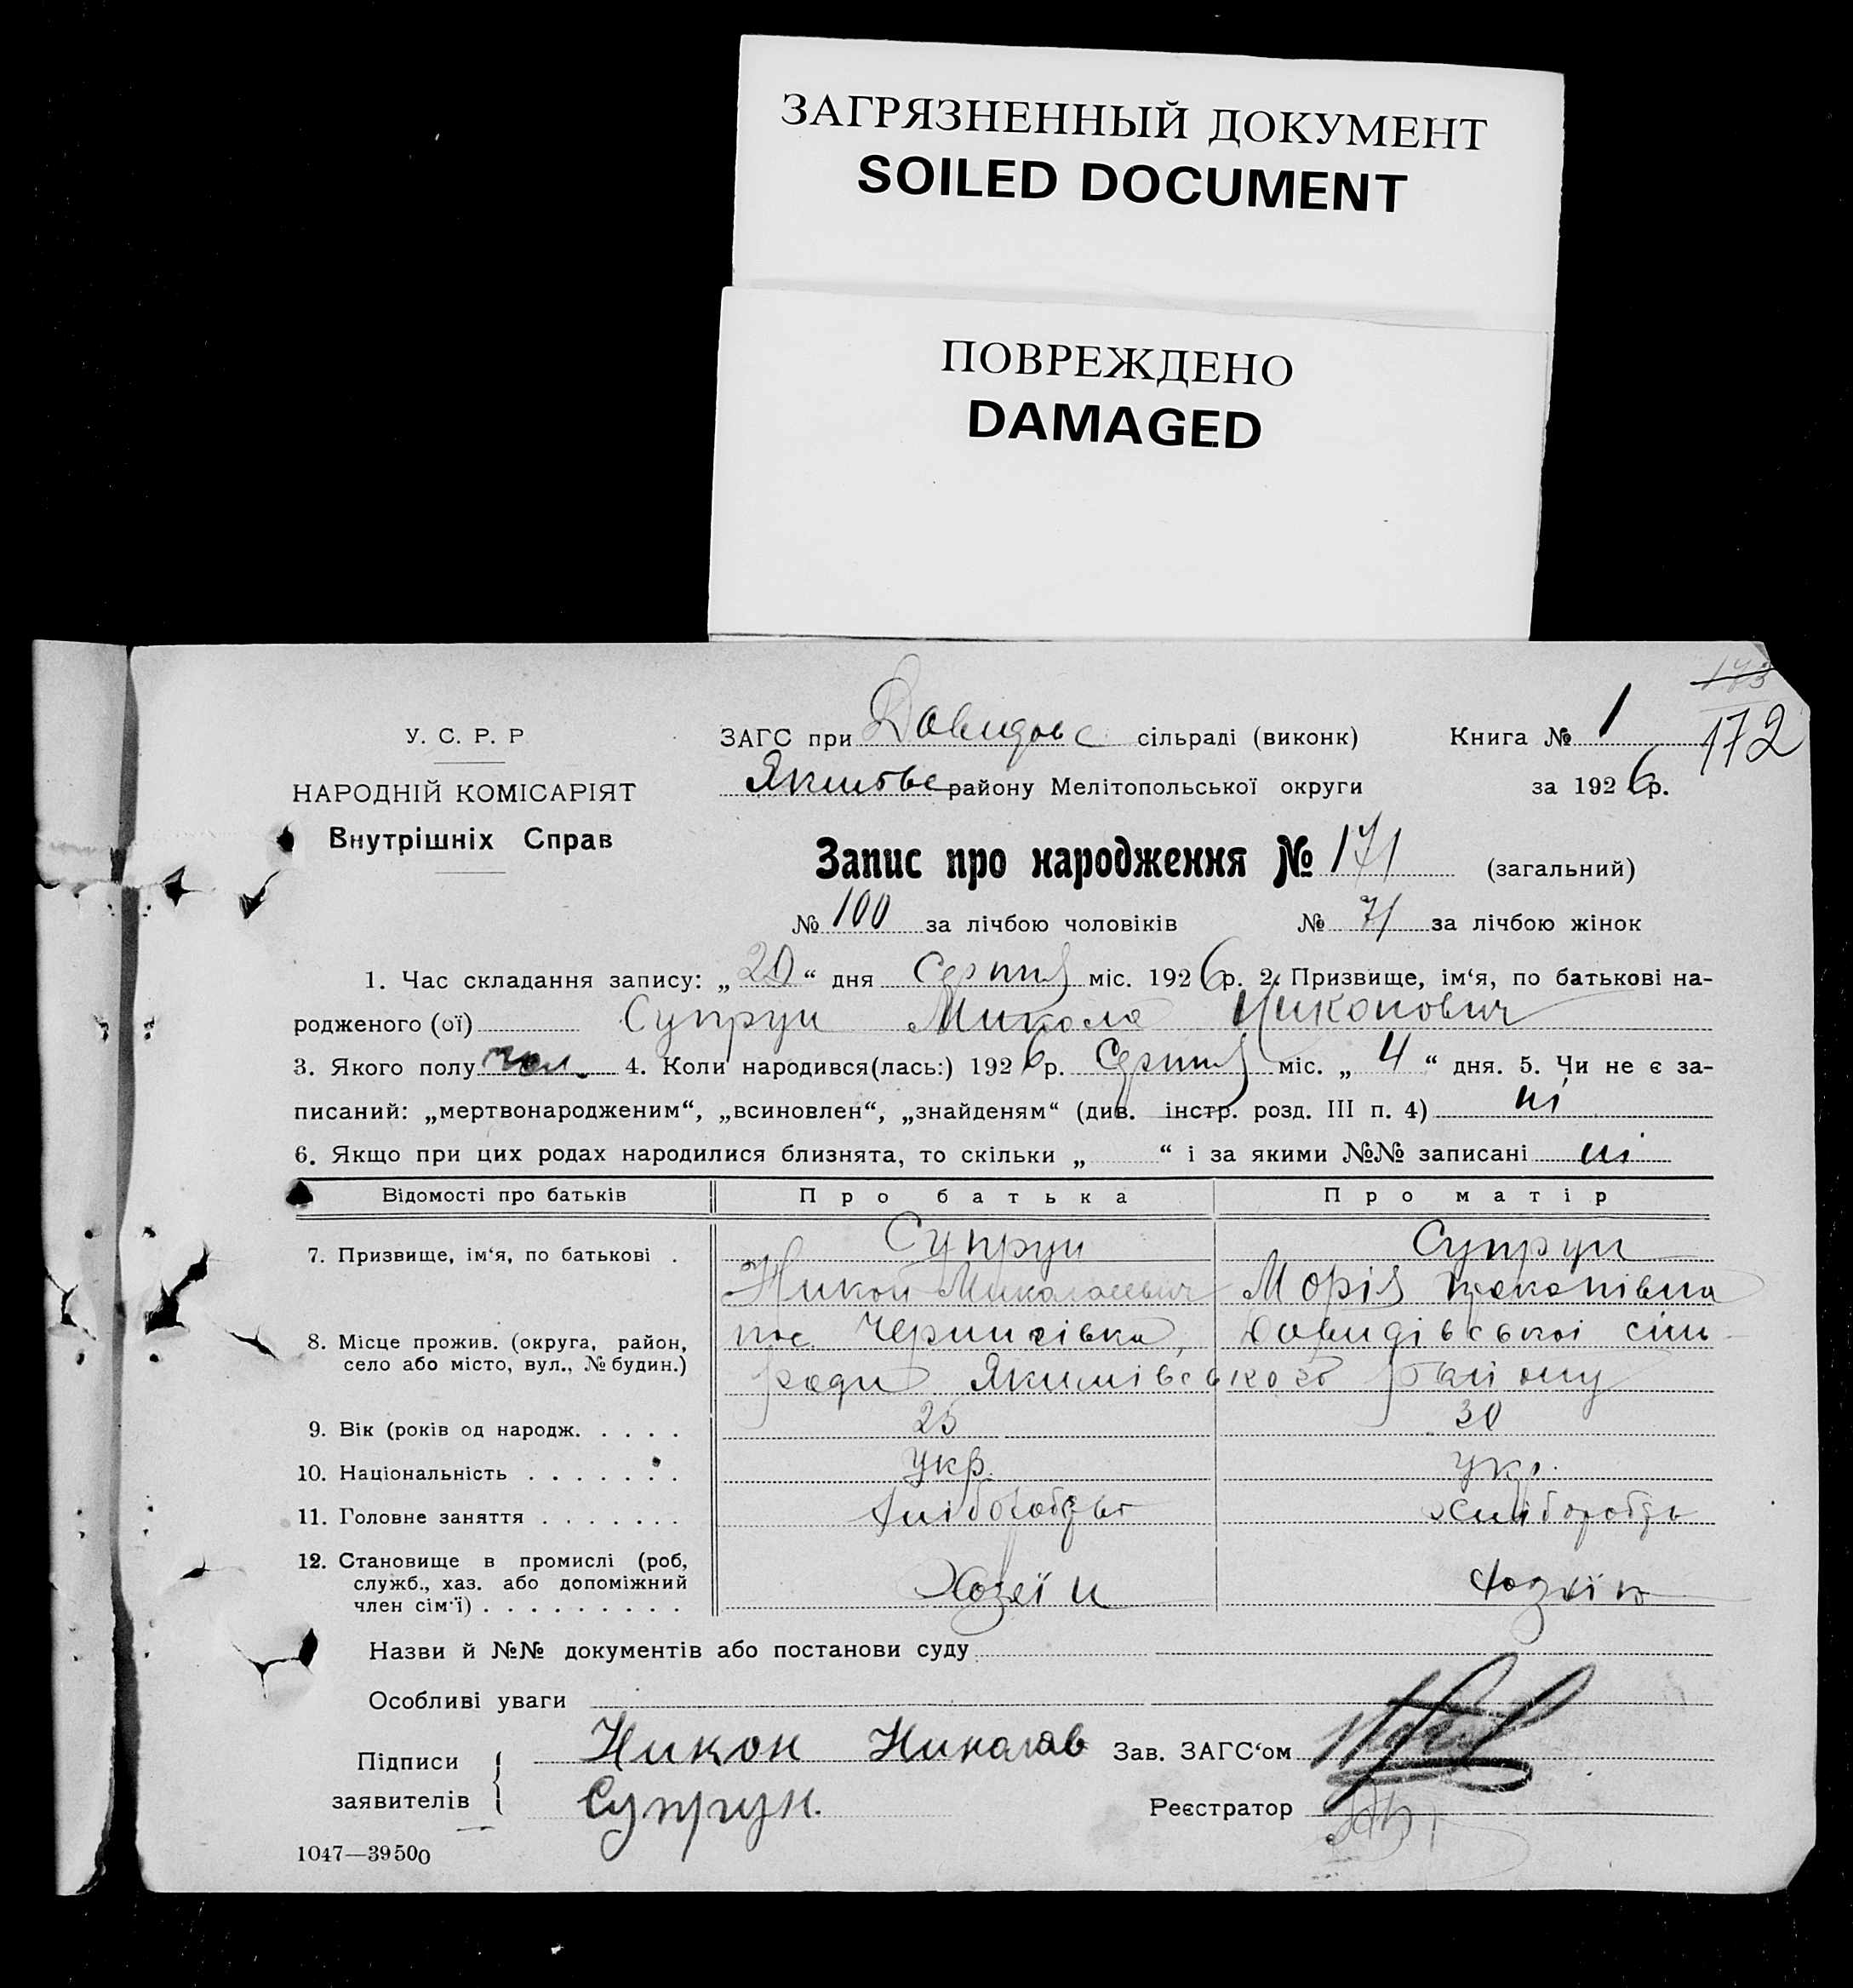 ЗАГРЯЗНЕННЫЙ ДОКУМЕНТ
SOILED DOCUMENT
ПОВРЕЖДЕНО
DAMAGED
173
172
У. С. Р. Р
НАРОДНІЙ КОМІСАРІЯТ
Внутрішніх Справ
ЗАГС при Давидовс сільраді (виконк) Книга № 1
району Мелітопольської округи за 1926 р.
Запис про народження № 171 (загальний)
№ 100 за лічбою чоловіків № 71 за лічбою жінок
1. Час складання запису: „20“ дня Серпня міс. 1926 р. 2. Призвище, ім‘я, по батькові на-
родженого (ої) Супрун Микола Никонович
3. Якого полу чол. 4. Коли народився(лась:) 1926 р. Серпня міс. „4“ дня. 5. Чи не є за-
писаний: „мертвонародженим“, „всиновлен“, „знайденям“ (див. інстр. розд. III п. 4) ні
6. Якщо при цих родах народилися близнята, то скільки „ “ і за якими №№ записані ні
Відомості про батьків Про батька Про матір
7. Призвище, ім‘я, по батькові . Супрун Супрун
Никон Миколаєвич Морія Прокопівна
8. Місце прожив. (округа, район, село або місто, вул., № будин.) пос. Давидівської сіль
ради Якимівського району
9. Вік (років од народж. . . . . 25 30
10. Національність . . . . . . . укр. укр.
11. Головне заняття . . . . . . . Хлібороб
12. Становище в промислі (роб,
служб., хаз. або допоміжний
член сім‘ї) . . . . . . . . . Хозяїн Хозяїн
Назви й №№ документів або постанови суду
Особливі уваги
Підписи Никон Зав. ЗАГС‘ом
заявителів Супрун. Реєстратор
1047—39500